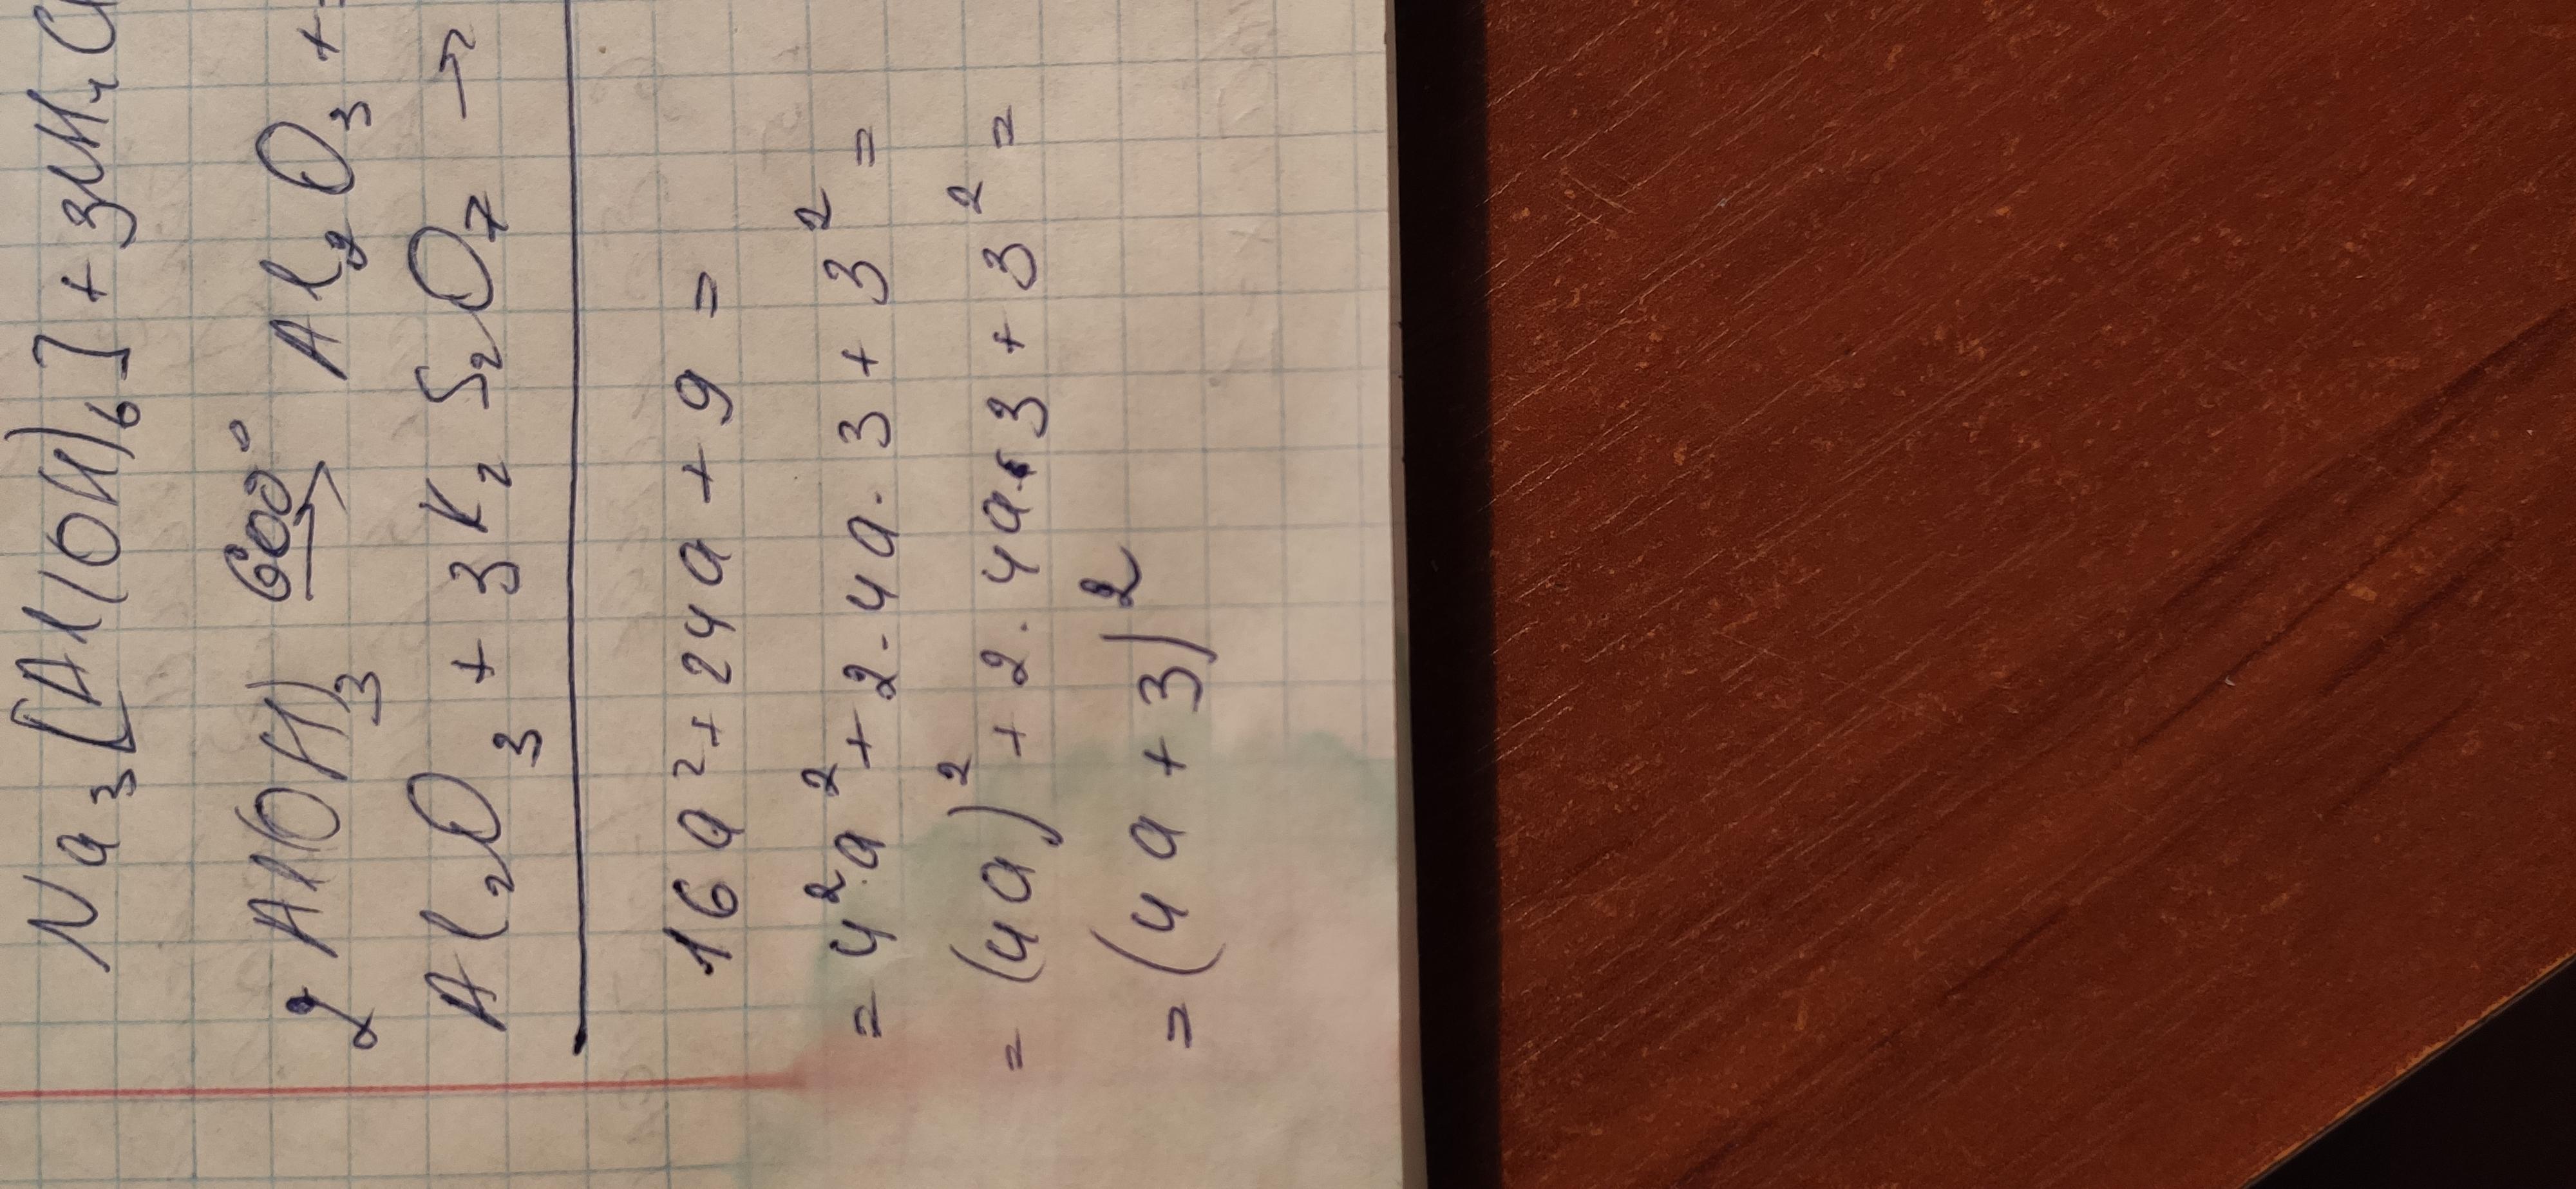 Na₃[Al(OH)₆] + 3
2 Al(OH)₃ → Al₂O₃ +
Al₂O₃ + 3K₂S₂O₇ →
16a² + 24a + 9 =
= 4²·a² + 2·4a·3 + 3² =
= (4a)² + 2·4a·3 + 3² =
= (4a + 3)²